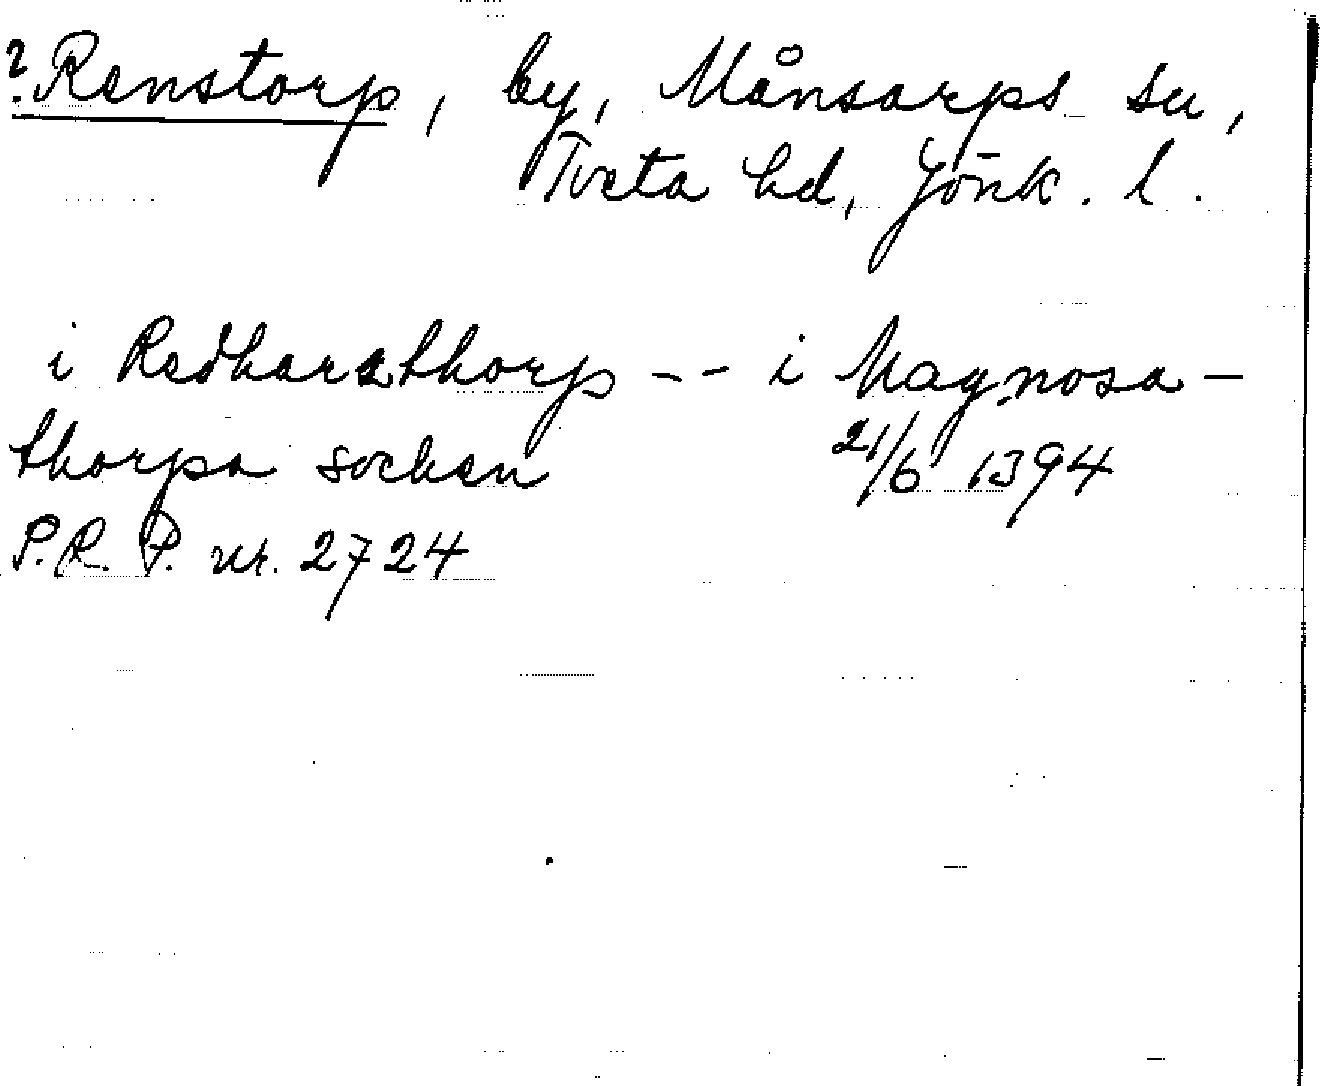 ? Renstorp, by, Månsarps sn,
Tveta hd, Jönk. l.
i Redharathorp -- i Magnosa-
thorpa socken 21/6 1394
S.R.P. nr. 2724